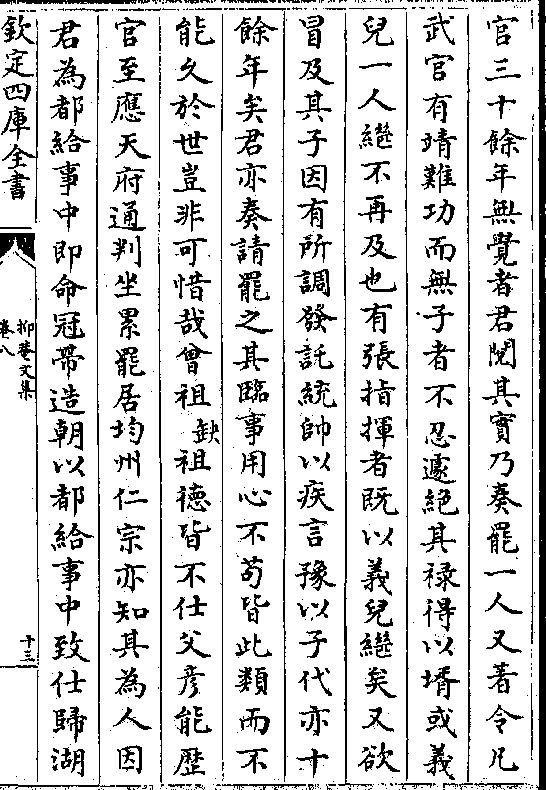 官三十餘年無覺者君閱其實乃奏罷一人又著令凡
武官有靖難功而無子者不忍遽絕其祿得以壻或義
兒一人繼不再及也有張指揮者既以義兒繼矣又欲
冒及其子因有所調發託統帥以疾言豫以子代亦十
餘年矣君亦奏請罷之其臨事用心不茍皆此類而不
能久於世豈非可惜哉曾祖缺祖德皆不仕父彥能歴
官至應天府通判坐累罷居均州仁宗亦知其為人因
君為都給事中即命冠帶造朝以都給事中致仕歸湖
欽定四庫全書
抑菴文集
卷八
十三